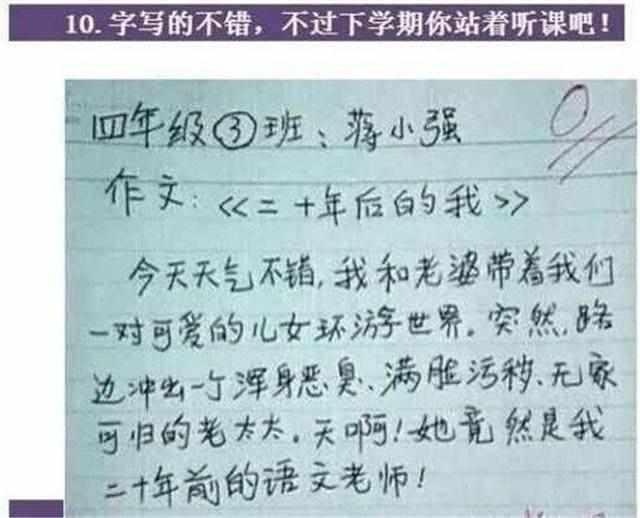 10. 字写的不错，不过下学期你站着听课吧！
0
四年级③班：蒋小强
作文：《二十年后的我》
今天天气不错，我和老婆带着我们
一对可爱的儿女环游世界。突然，路
边冲出一个浑身恶臭、满脸污秽、无家
可归的老太太。天啊！她竟然是我
二十年前的语文老师！